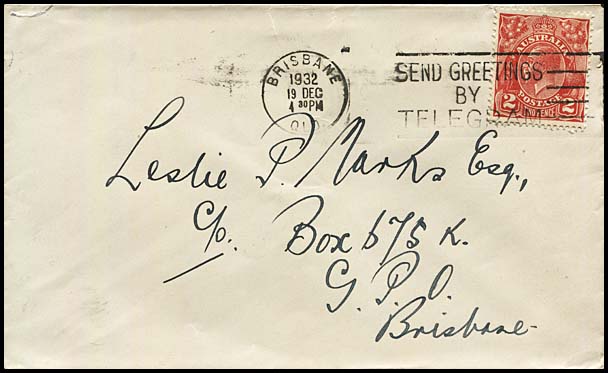 BRISBANE
1932
19 DEC
4 30 PM
SEND GREETINGS
BY
TELEGRAM
AUSTRALIA
POSTAGE
2 TWOPENCE 2
Leslie P. Marks Esq.,
C/o. Box 675 K.
G. P. O.
Brisbane